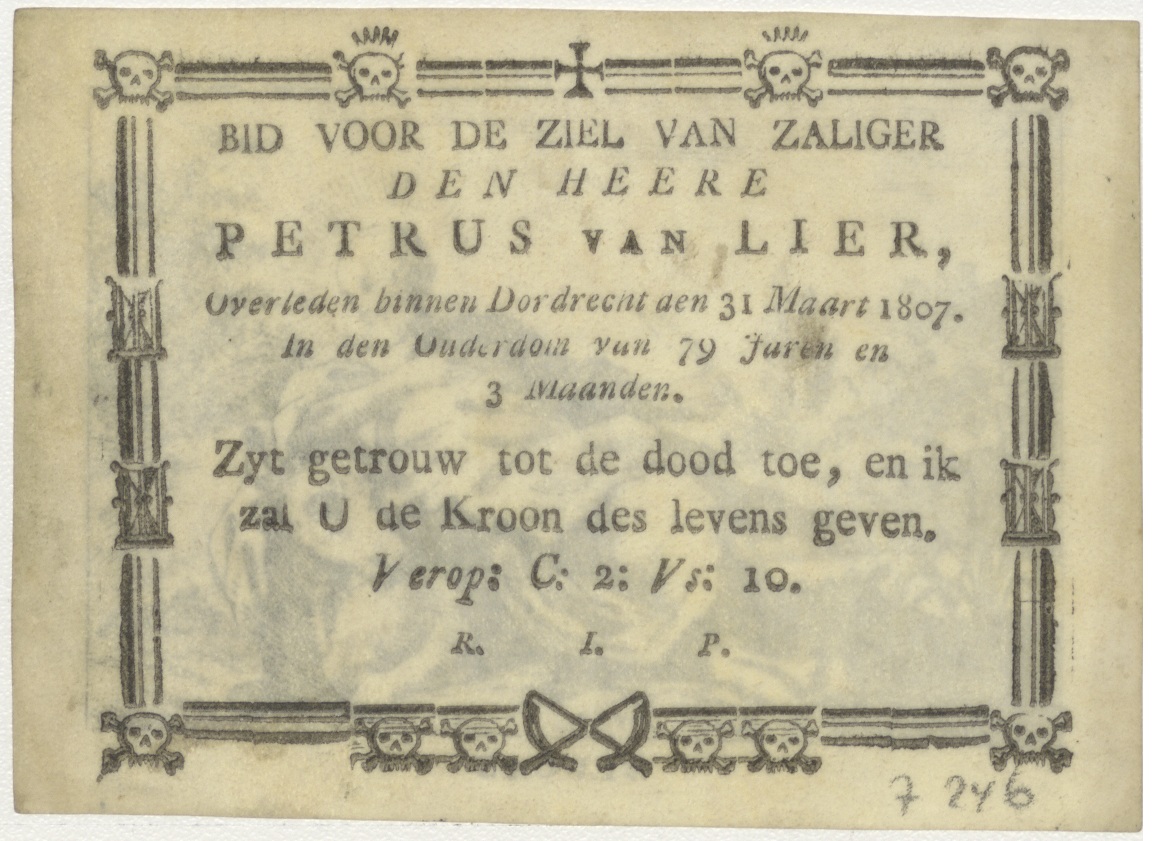 BID VOOR DE ZIEL VAN ZALIGER
DEN HEERE
PETRUS VAN LIER,
Overleden binnen Dordrecht den 31 Maart 1807.
In den Ouderdom van 79 Jaren en
3 Maanden.
Zyt getrouw tot de dood toe, en ik
zal U de Kroon des levens geven.
Verop: C: 2: Vs: 10.
R. I. P.
7 246